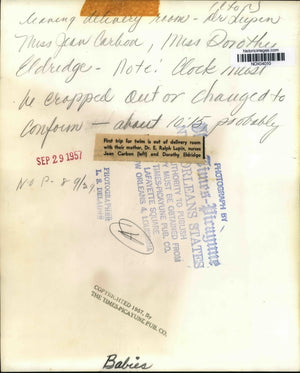 leaving delivery room - Dr. Lupin
Miss Jean Carbon, Miss Dorothy
Eldredge - Note: Clock must
be cropped out or changed to
conform - about 10:15 probably
historicimages.com
First trip for twins is out of delivery room
with their mother, Dr. E. Ralph Lupin, nurses
Jean Carbon (left) and Dorothy Eldridge
SEP 29 1957
N O P - 8 9/29
PHOTOGRAPH BY
Times-Picayune
ORLEANS STATES
AUTHORITY TO PUBLISH
MUST BE OBTAINED FROM
THE TIMES-PICAYUNE PUB. CO.
LAFAYETTE SQUARE
NEW ORLEANS
PHOTOGRAPHER
COPYRIGHTED 1957, By
THE TIMES-PICAYUNE PUB. CO.
Babies